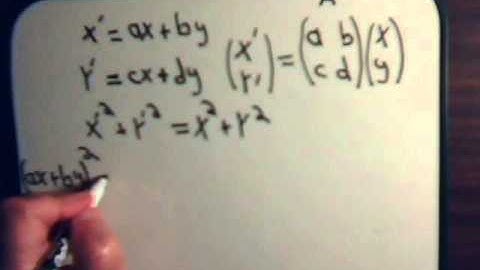 x' = ax + by
Y' = cx + dy (x' Y') = (a b c d)(x y)
x'² + Y'² = x² + Y²
(ax + by)²